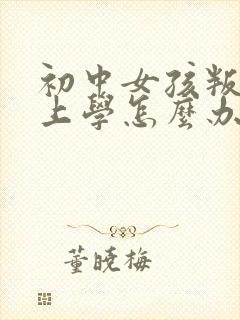 初中女孩叛
上學怎麼办
董晓梅